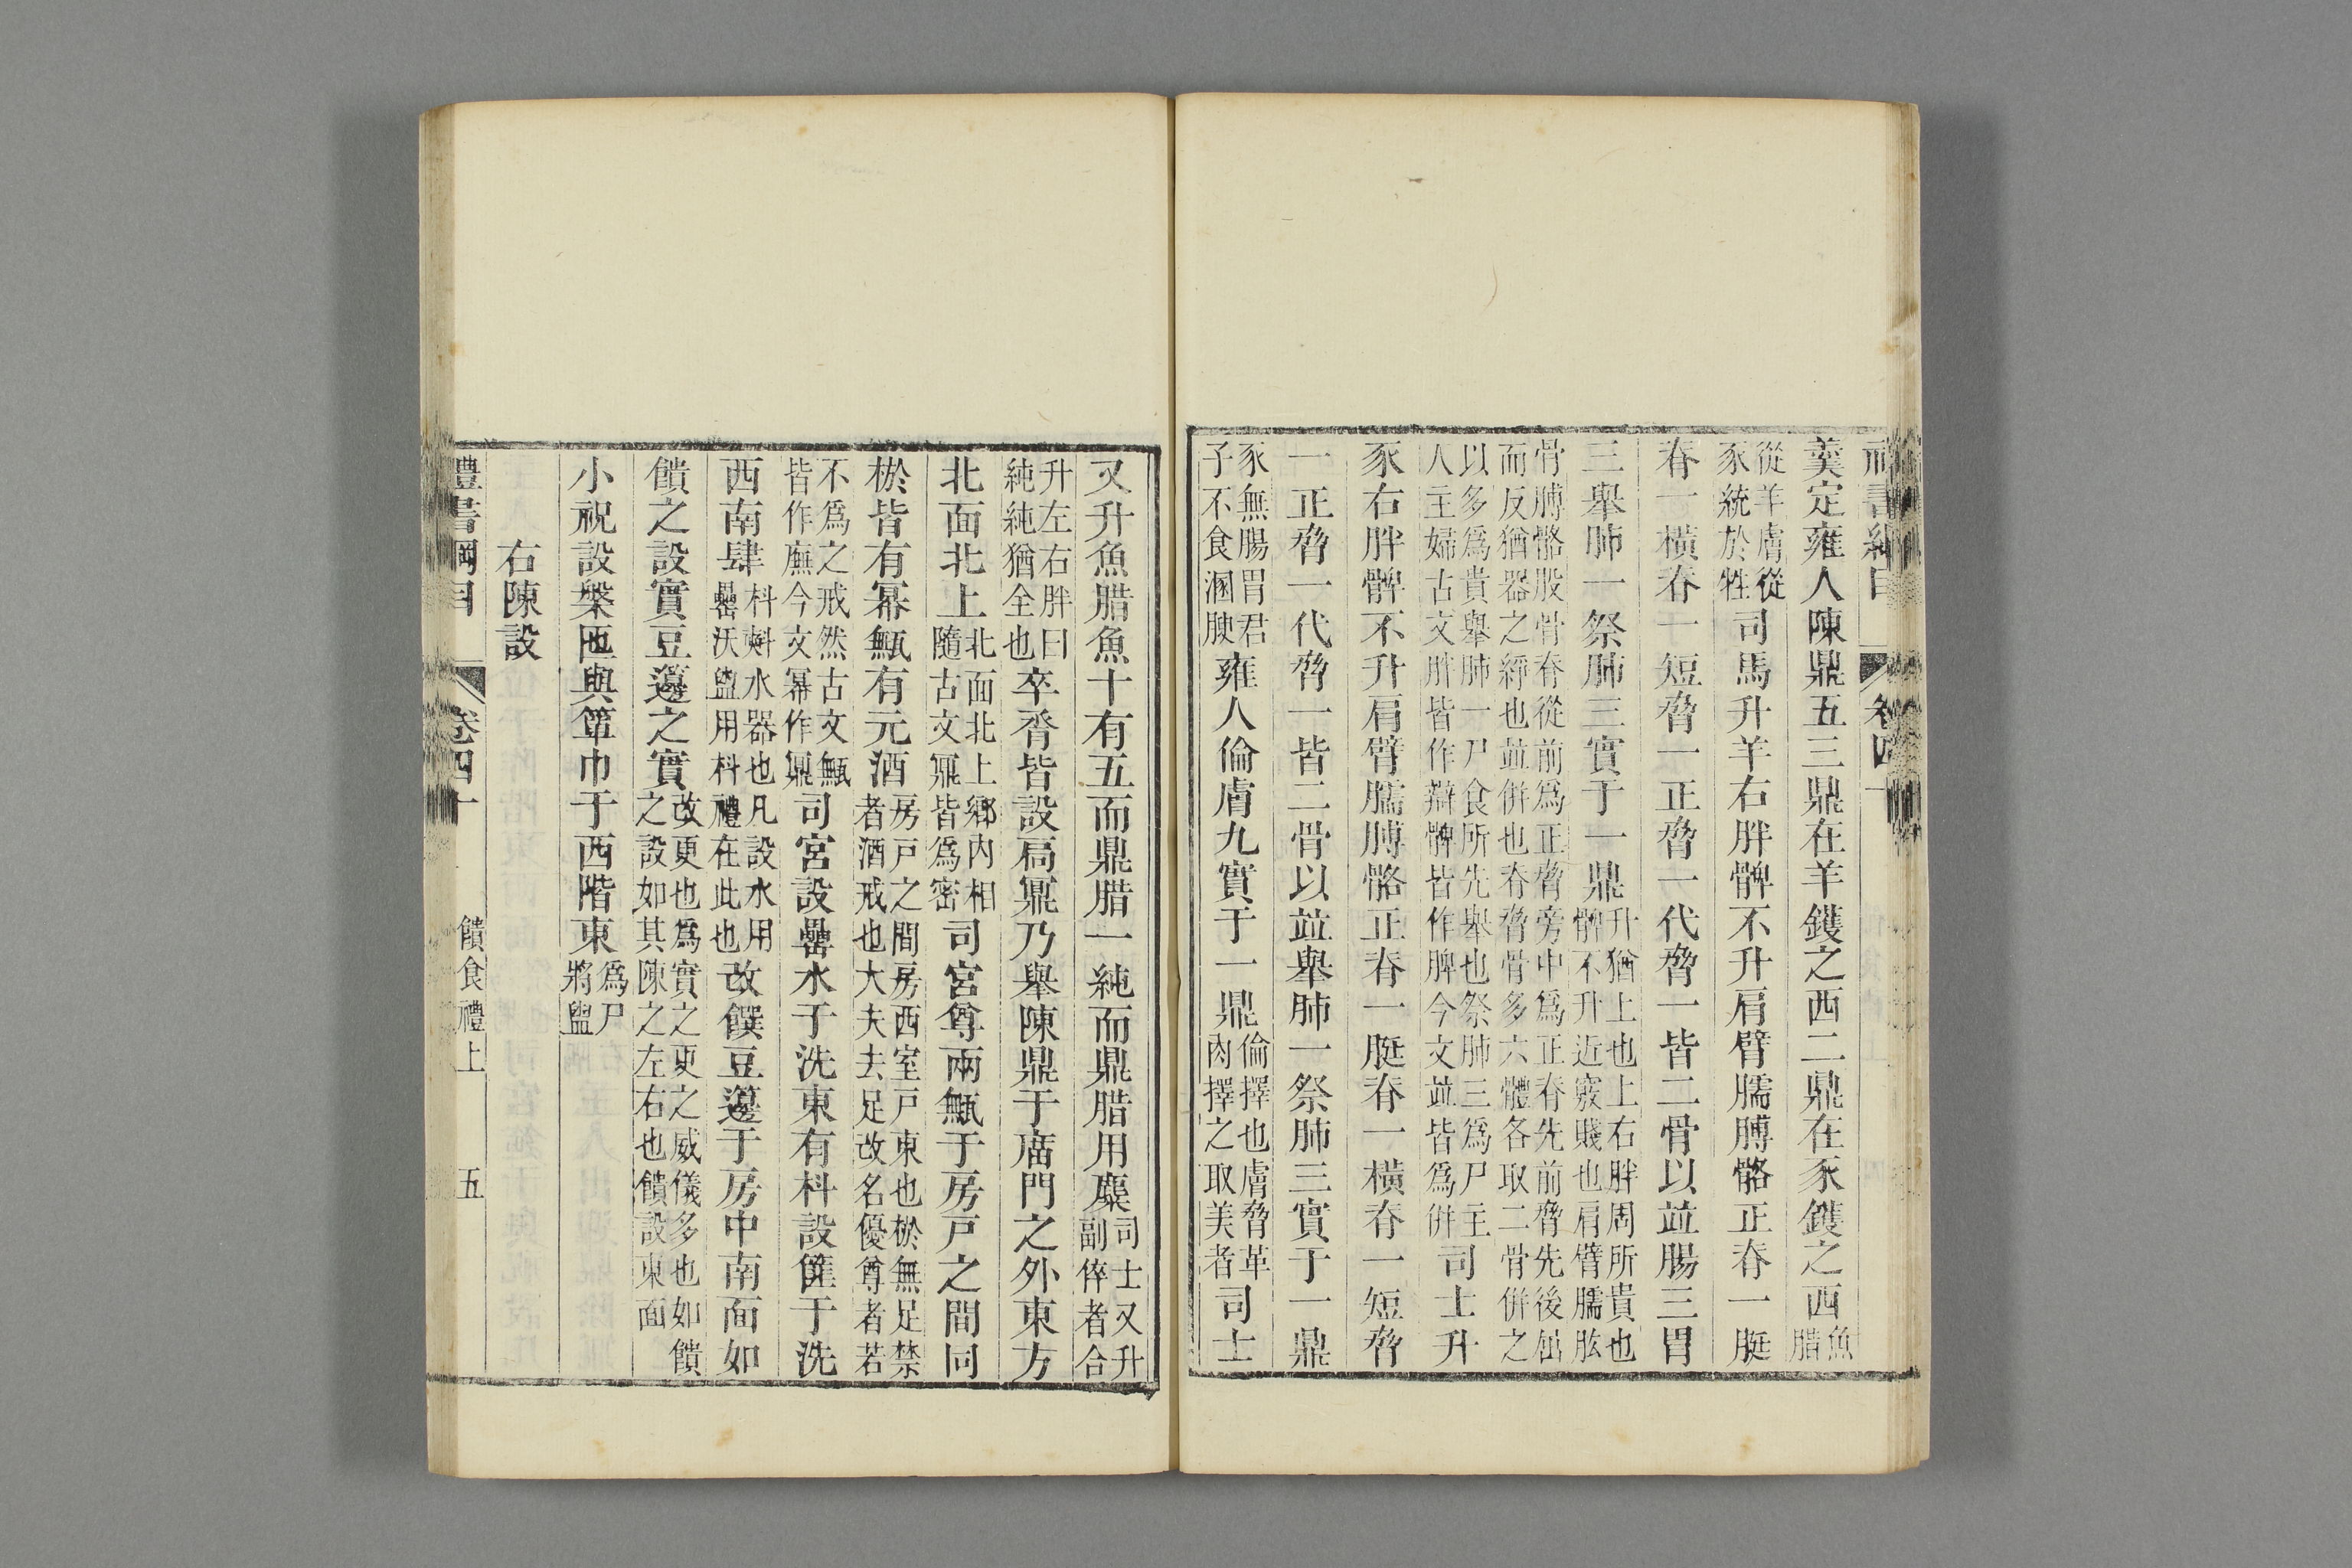 禮書綱目 卷四十
羹定雍人陳鼎五三鼎在羊鑊之西二鼎在豕鑊之西魚腊
從羊膚從豕統於牲司馬升羊右胖髀不升肩臂臑膊骼正脊一脡
脊一橫脊一短脅一正脅一代脅一皆二骨以竝腸三胃
三舉肺一祭肺三實于一鼎升猶上也上右胖周所貴也髀不升近竅賤也肩臂臑肱
骨膊骼股骨脊從前爲正脅旁中爲正脊先前脅先後屈而反猶器之綷也竝併也脊脅骨多六體各取二骨併之
以多爲貴舉肺一尸食所先舉也祭肺三爲尸主人主婦古文胖皆作辯髀皆作脾今文竝皆爲併司士升
豕右胖髀不升肩臂臑膊骼正脊一脡脊一橫脊一短脅
一正脅一代脅一皆二骨以竝舉肺一祭肺三實于一鼎
豕無腸胃君子不食溷腴雍人倫膚九實于一鼎倫擇也膚脅革肉擇之取美者司士
又升魚腊魚十有五而鼎腊一純而鼎腊用麋司士又升副倅者合
升左右胖曰純純猶全也卒脀皆設扃鼏乃舉陳鼎于廟門之外東方
北面北上北面北上鄉內相隨古文鼏皆爲密司宮尊兩甒于房戶之間同
棜皆有冪甒有元酒房戶之間房西室戶東也棜無足禁者酒戒也大夫去足改名優尊者若
不爲之戒然古文甒皆作廡今文冪作鼏司宮設罍水于洗東有枓設篚于洗
西南肆枓㪺水器也凡設水用罍沃盥用枓禮在此也改饌豆籩于房中南面如
饋之設實豆籩之實改更也爲實之更之威儀多也如饋之設如其陳之左右也饋設東面
小祝設槃匜與簞巾于西階東爲尸將盥
右陳設
禮書綱目 卷四十 饋食禮上 五